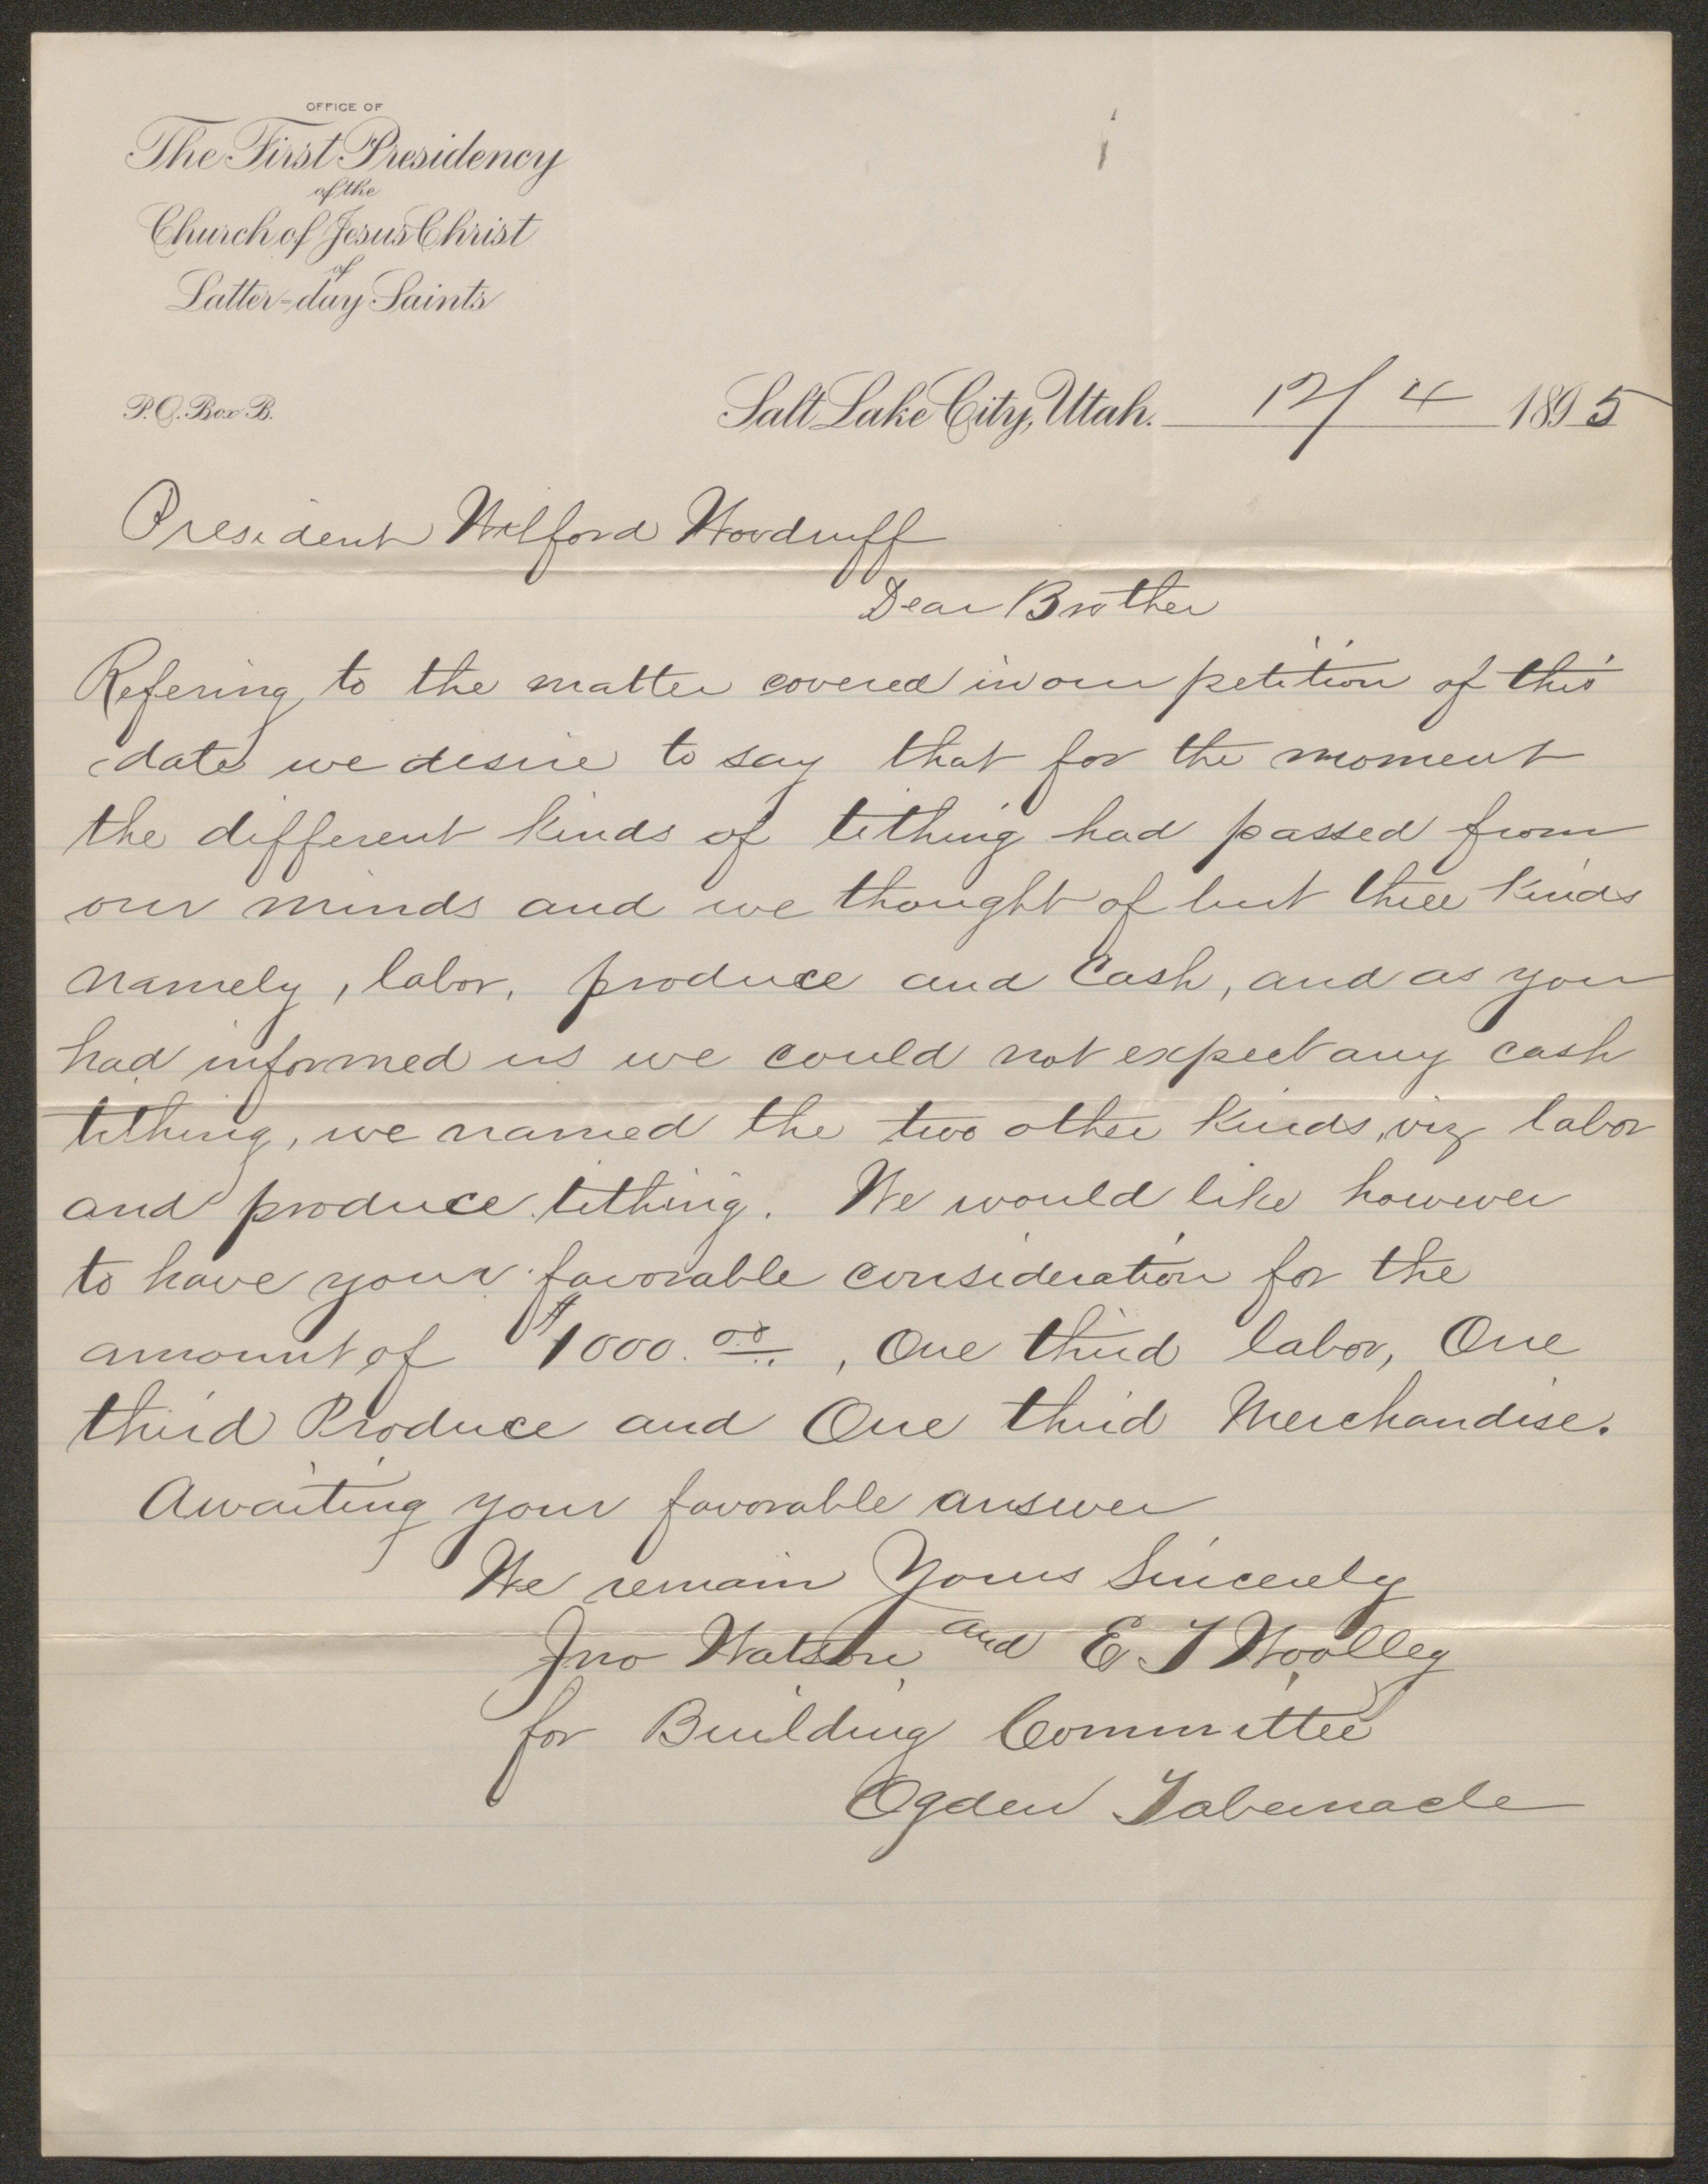 OFFICE OF
The First Presidency
of the
Church of Jesus Christ
of
Latter-day Saints
P.O. Box B.
Salt Lake City, Utah. 12/4 1895
President Wilford Woodruff
Dear Brother
Refering to the matter covered in our petition of this
date we desire to say that for the moment
the different kinds of tithing had passed from
our minds and we thought of but three kinds
namely, labor, produce and Cash, and as you
had informed us we could not expect any cash
tithing, we named the two other kinds, viz labor
and produce tithing. We would like however
to have your favorable consideration for the
amount of $1000.00, One third labor, One
third Produce and One third Merchandise.
Awaiting your favorable answer
We remain Yours Sincerely
Jno Watson and E T Woolley
for Building Committee
Ogden Tabernacle